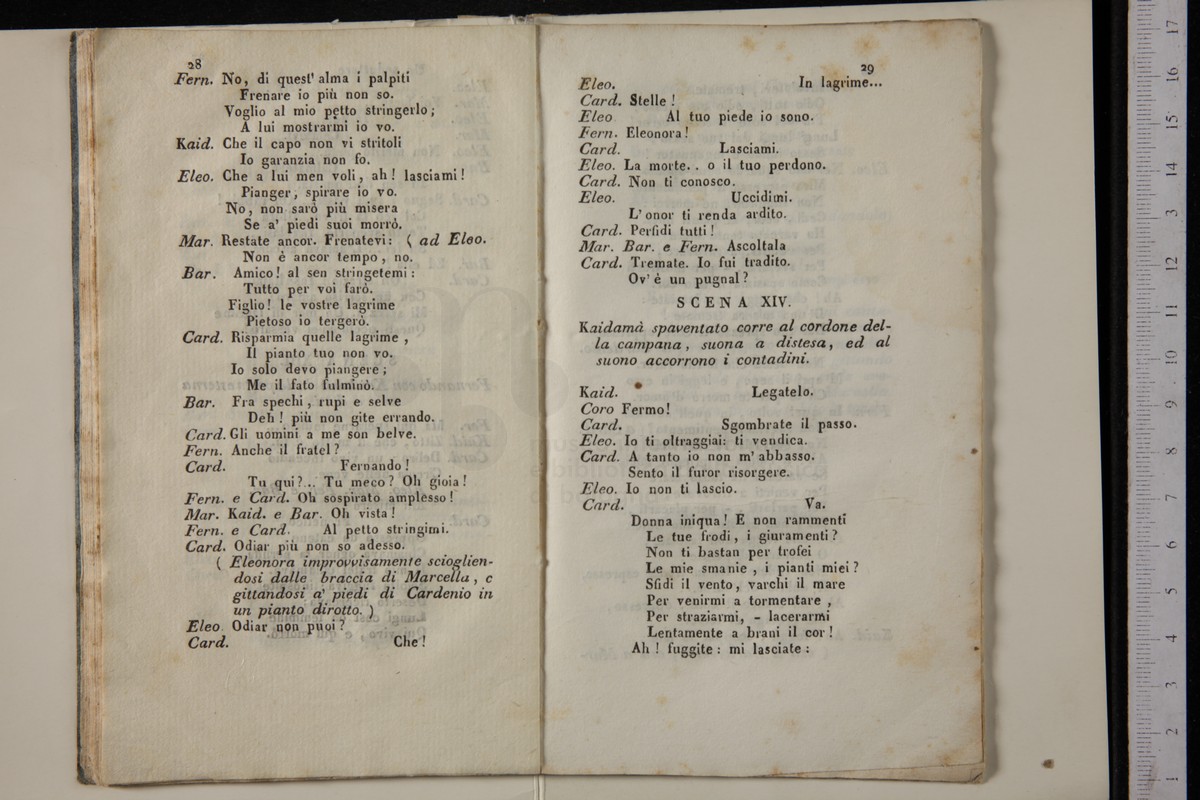 28
Fern. No, di quest' alma i palpiti
Frenare io più non so.
Voglio al mio petto stringerlo;
A lui mostrarmi io vo.
Kaid. Che il capo non vi stritoli
Io garanzia non fo.
Eleo. Che a lui men voli, ah! lasciami!
Pianger, spirare io vo.
No, non sarò più misera
Se a' piedi suoi morrò.
Mar. Restate ancor. Frenatevi: ( ad Eleo.
Non è ancor tempo, no.
Bar. Amico! al sen stringetemi:
Tutto per voi farò.
Figlio! le vostre lagrime
Pietoso io tergerò.
Card. Risparmia quelle lagrime,
Il pianto tuo non vo.
Io solo devo piangere;
Me il fato fulminò.
Bar. Fra spechi, rupi e selve
Deh! più non gite errando.
Card. Gli uomini a me son belve.
Fern. Anche il fratel?
Card. Fernando!
Tu qui?... Tu meco? Oh gioia!
Fern. e Card. Oh sospirato amplesso!
Mar. Kaid. e Bar. Oh vista!
Fern. e Card. Al petto stringimi.
Card. Odiar più non so adesso.
( Eleonora improvvisamente scioglien-
dosi dalle braccia di Marcella, e
gittandosi a' piedi di Cardenio in
un pianto dirotto. )
Eleo. Odiar non puoi?
Card. Che!
29
Eleo. In lagrime...
Card. Stelle!
Eleo Al tuo piede io sono.
Fern. Eleonora!
Card. Lasciami.
Eleo. La morte.. o il tuo perdono.
Card. Non ti conosco.
Eleo. Uccidimi.
L' onor ti renda ardito.
Card. Perfidi tutti!
Mar. Bar. e Fern. Ascoltala
Card. Tremate. Io fui tradito.
Ov' è un pugnal?
SCENA XIV.
Kaidamà spaventato corre al cordone del-
la campana, suona a distesa, ed al
suono accorrono i contadini.
Kaid. Legatelo.
Coro Fermo!
Card. Sgombrate il passo.
Eleo. Io ti oltraggiai: ti vendica.
Card. A tanto io non m' abbasso.
Sento il furor risorgere.
Eleo. Io non ti lascio.
Card. Va.
Donna iniqua! E non rammenti
Le tue frodi, i giuramenti?
Non ti bastan per trofei
Le mie smanie, i pianti miei?
Sfidi il vento, varchi il mare
Per venirmi a tormentare,
Per straziarmi, - lacerarmi
Lentamente a brani il cor!
Ah! fuggite: mi lasciate:
1 2 3 4 5 6 7 8 9 10 11 12 13 14 15 16 17